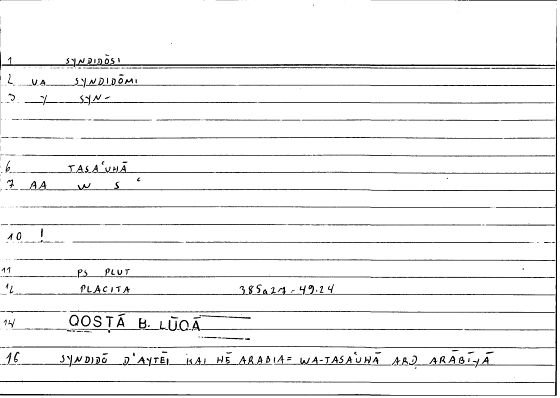 1 SYNDIDŌSI
2 VA SYNDIDŌMI
3 Y SYN-
6 TASA'UHĀ
7 AA W S '
10 !
11 PS PLUT
12 PLACITA 385a27-49.24
14 QOSṬĀ B. LŪQĀ
16 SYNDIDŌ D'AYTĒI KAI HĒ ARADIA= WA-TASA'UHĀ ARḌ ARĀBĪYĀ